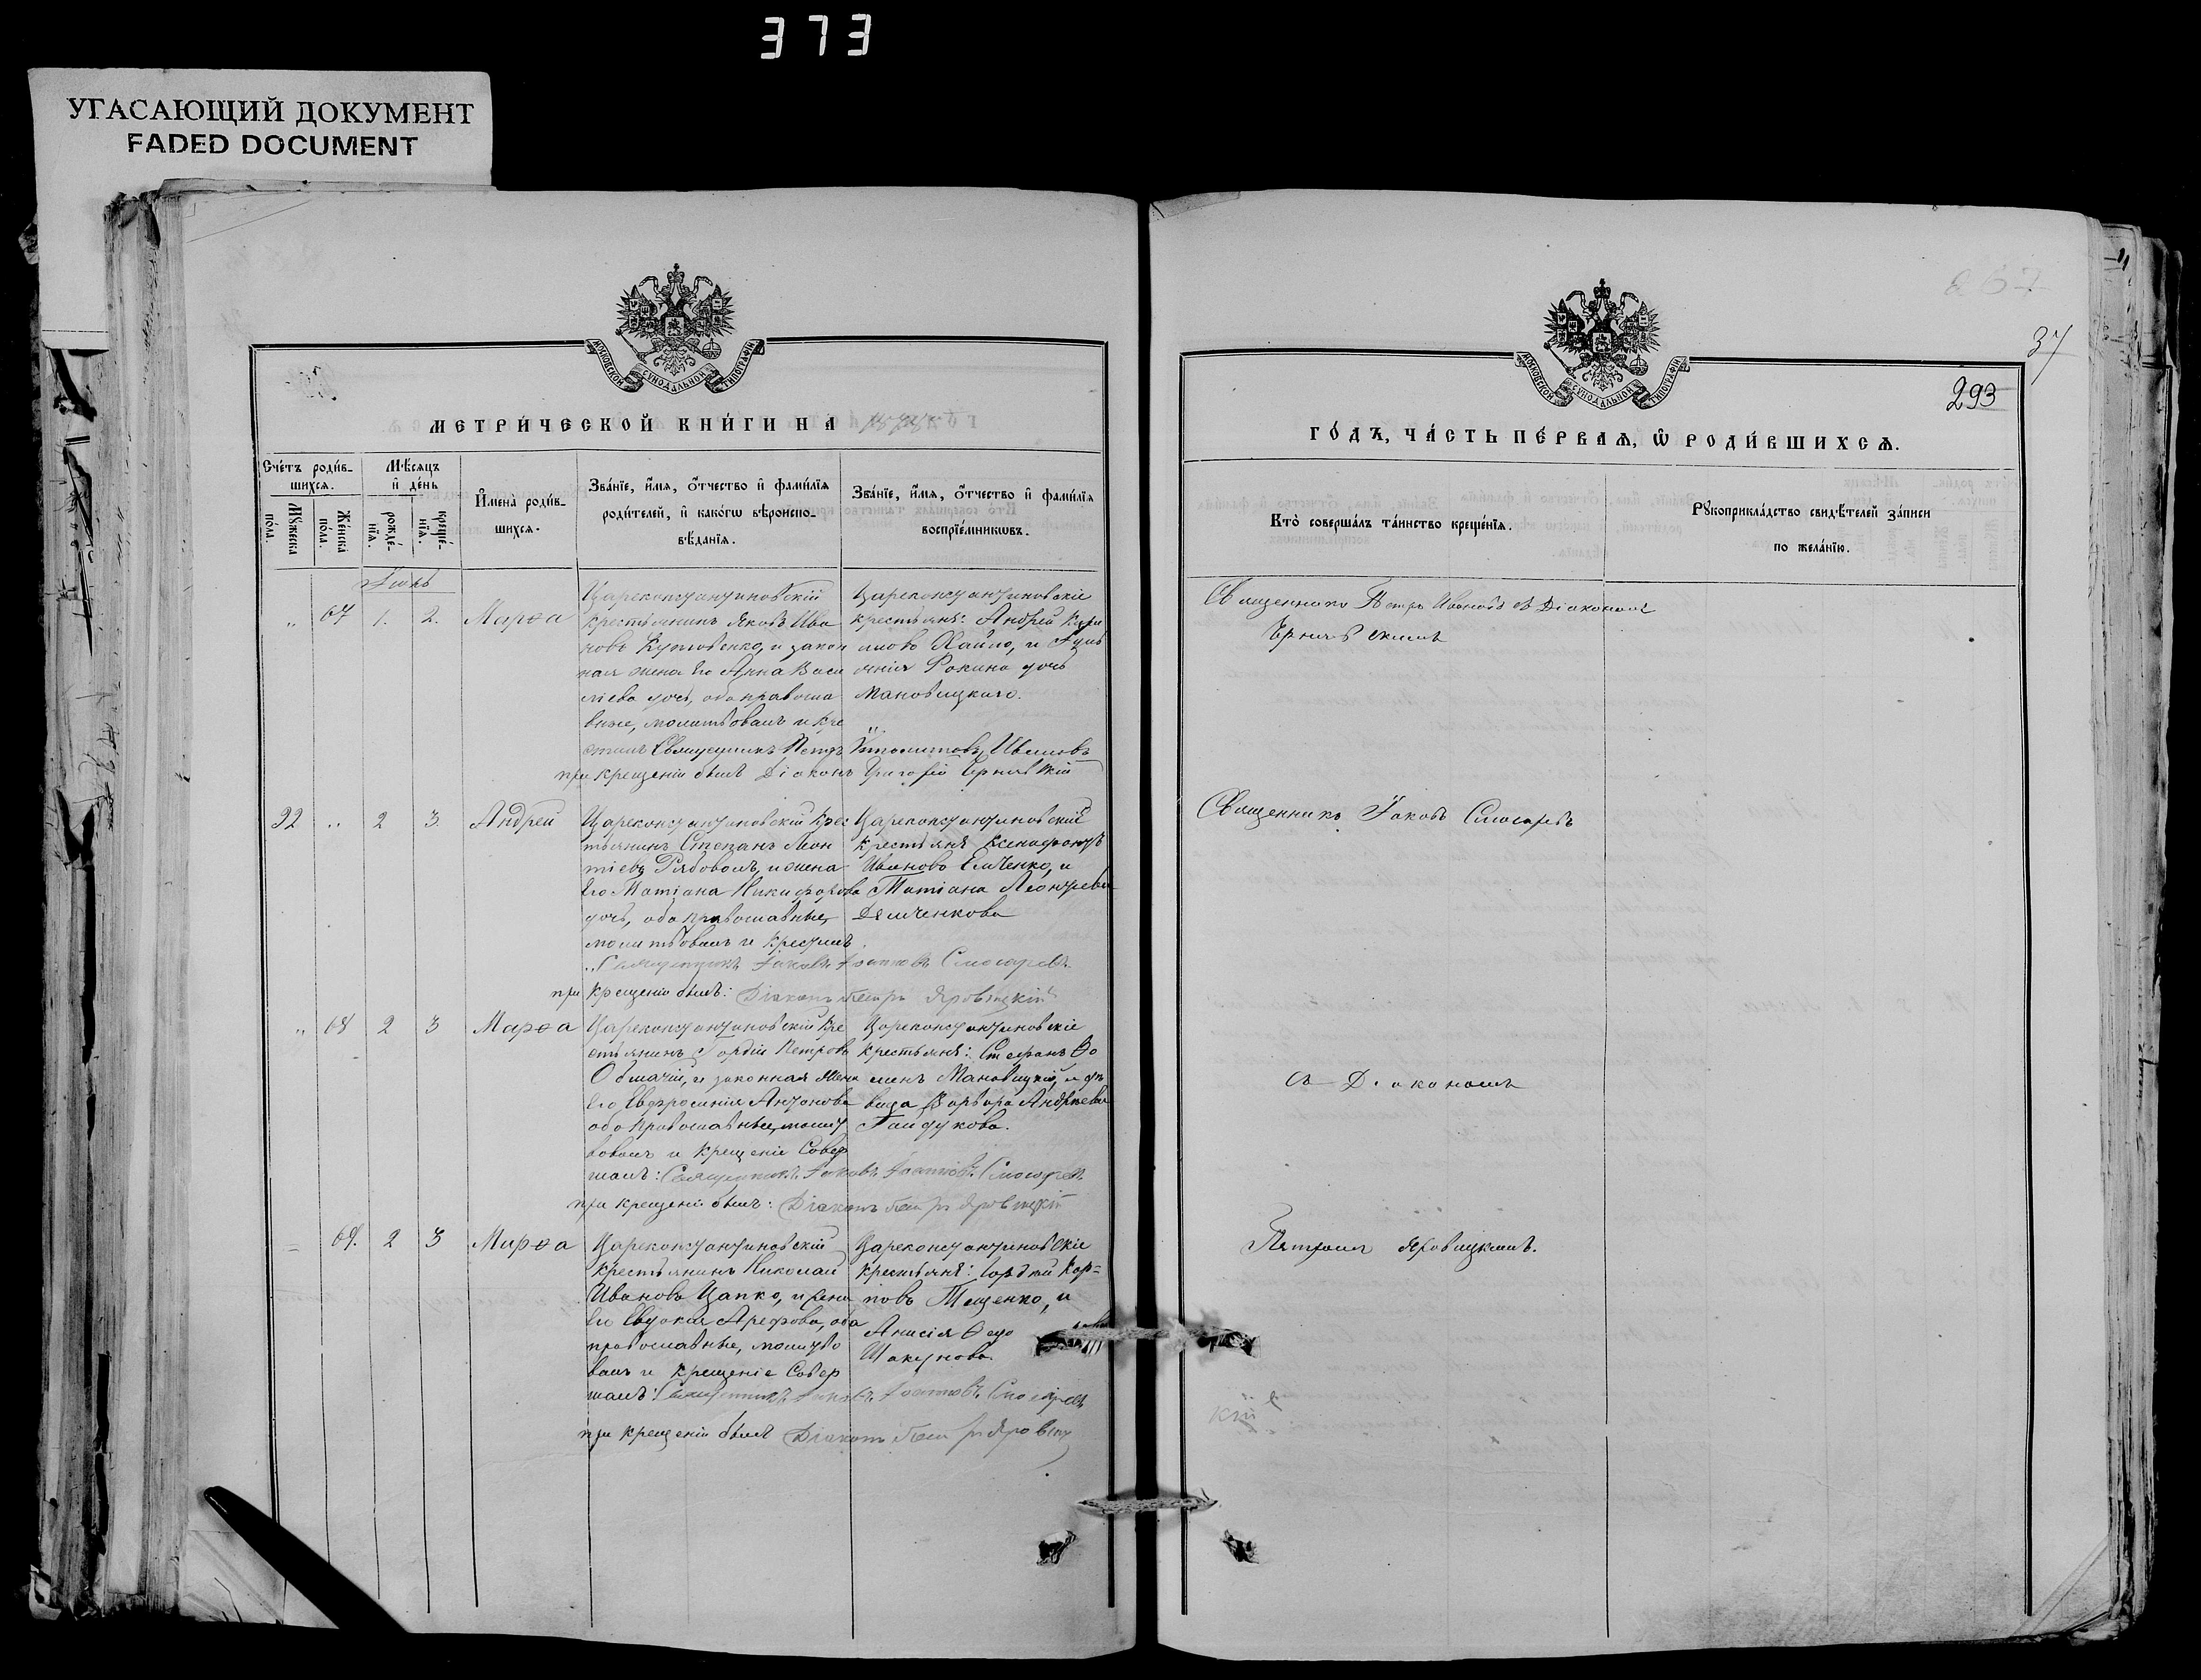 373
УГАСАЮЩИЙ ДОКУМЕНТ
FADED DOCUMENT
МОСКОВСКОЙ СѴНОДАЛЬНОЙ ТИПОГРАФІИ
МЕТРИ́ЧЕСКОЙ КНИ́ГИ НА
Сче́тъ роди́в-
шихся.
Мꙋжеска по́ла.
Же́нска по́ла.
Мѣ́сяцъ
и҆ де́нь
рожде́-
нїѧ.
креще́-
нїѧ.
И҆мена̀ роди́в-
шихся.
Зва́нїе, и҆́мѧ, ѻ҆́тчество и҆ фами́лїѧ
роди́телей, и҆ како́гѡ вѣроиспо-
вѣ́данїѧ.
Зва́нїе, и҆́мѧ, ѻ҆́тчество и҆ фами́лїѧ
воспрїе́мникѡвъ.
Іюнь
„ 67 1. 2. Марѳа
Цареконстантиновскій
крестьянинъ Яковъ Ива
новъ и закон
ная жена его Анна Васи
ліева дочь, оба правосла
вные, молитвовалъ и кре
стилъ Священникъ Петръ Ипполитовъ Ивановъ
при крещеніи былъ Діаконъ Григорій
Цареконстантиновскіе
крестьяне: Андрей
и
Фокина дочь
Мановицкаго.
32 „ 2 3. Андрей
Цареконстантиновскій крес
тьянинъ Степанъ Леон
тіевъ и жена
его Татіана Никифорова
дочь, оба православные,
молитвовалъ и крестилъ
Священникъ Іаковъ Іоанновъ Слюсаревъ
при крещеніи былъ: Діаконъ Петръ Яровицкій
Цареконстантиновскій
крестьяне Ксенофонтъ
Ивановъ и
Татіана Леонтьева
Демченкова
„ 68 2 3 Марѳа
Цареконстантиновскій кре
стьянинъ Гордій Петровъ
и законная жена
его Евфросинія Антонова
оба православные, молит
вовалъ и крещеніе совер
шалъ: Священникъ Іаковъ Іоанновъ Слюсаревъ
при крещеніи былъ: Діаконъ Петръ Яровицкій
Цареконстантиновскіе
крестьяне: Стефанъ Ѳо
минъ Мановицкій, и дѣ
вица Варвара Андреева
Гайдукова.
69. 2 3 Марѳа
Цареконстантиновскій
крестьянинъ Николай
Ивановъ Цапко, и жена
его Евдокія Арефова, оба
православные, молитво
валъ и крещеніе совер
шалъ: Священникъ Іаковъ Іоанновъ Слюсаревъ
при крещеніи былъ Діаконъ Петръ Яровиц
Цареконстантиновскіе
крестьяне: Гордѣй Кар=
повъ Тещенко, и
Анисія
Шакунова.
37
293
МОСКОВСКОЙ СѴНОДАЛЬНОЙ ТИПОГРАФІИ
ГО́ДЪ, ЧА́СТЬ ПЕ́РВАѦ, Ѡ҆ РОДИ́ВШИХСѦ.
Кто̀ соверша́лъ та́инство креще́нїѧ.
Рꙋкоприкла́дство свидѣ́телей за́писи
по жела́нїю.
Священникъ Петръ Ивановъ съ Діакономъ
Священникъ Іаковъ Слюсаревъ
съ Діакономъ
Петромъ Яровицкимъ.
кій